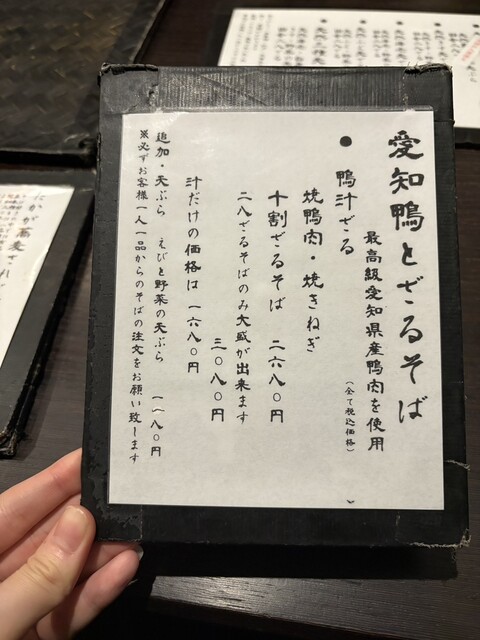 愛知鴨とざるそば
最高級愛知県産鴨肉を使用
(全て税込価格)
● 鴨汁ざる
焼鴨肉・焼きねぎ
十割ざるそば 二六八〇円
二八ざるそばのみ大盛が出来ます
三〇八〇円
汁だけの価格は 一六八〇円
追加・天ぷら えびと野菜の天ぷら 一一八〇円
※必ずお客様一人一品からのそばの注文をお願い致します